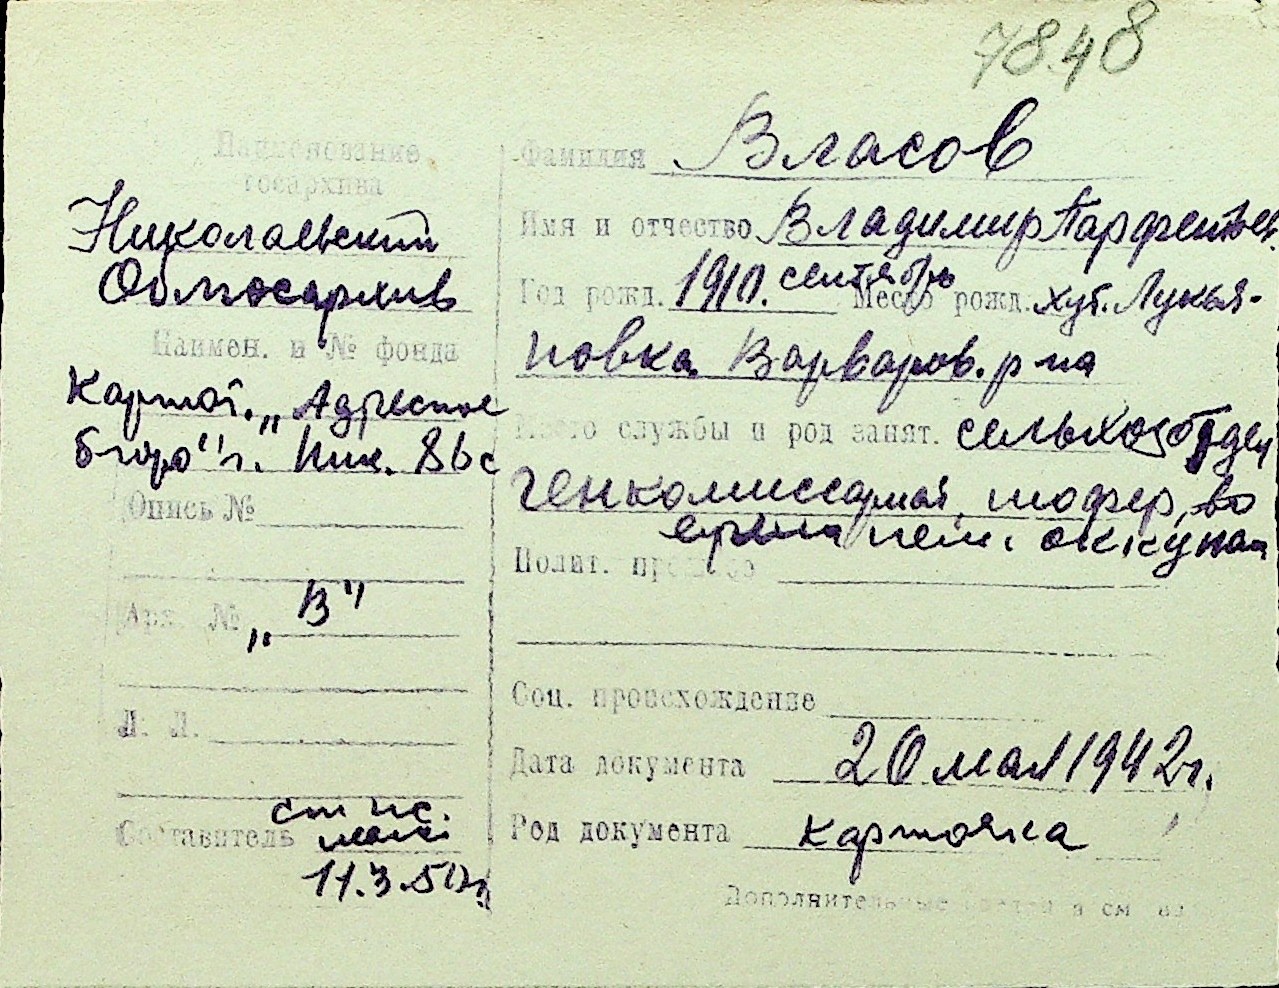 7848
Наименование
госархива
Николаевский
Облгосархив
Наимен. и № фонда
Картот. „Адресное
бюро" г. Ник.
Опись №
Арх. № „В"
Л. Л.
Составитель
11.3.50г.
Фамилия Власов
Имя и отчество Владимир Парфентьев.
Год рожд. 1910. сентябрь Место рожд. хут. Лукья-
новка Варваров. р-на
Место службы и род занят. сельхозотдел
генкомиссариат, шофер, во
время нем. оккупац
Полит. прошлое
Соц. происхождение
Дата документа 20 мая 1942г.
Род документа карточка
Дополнительные сведения см.